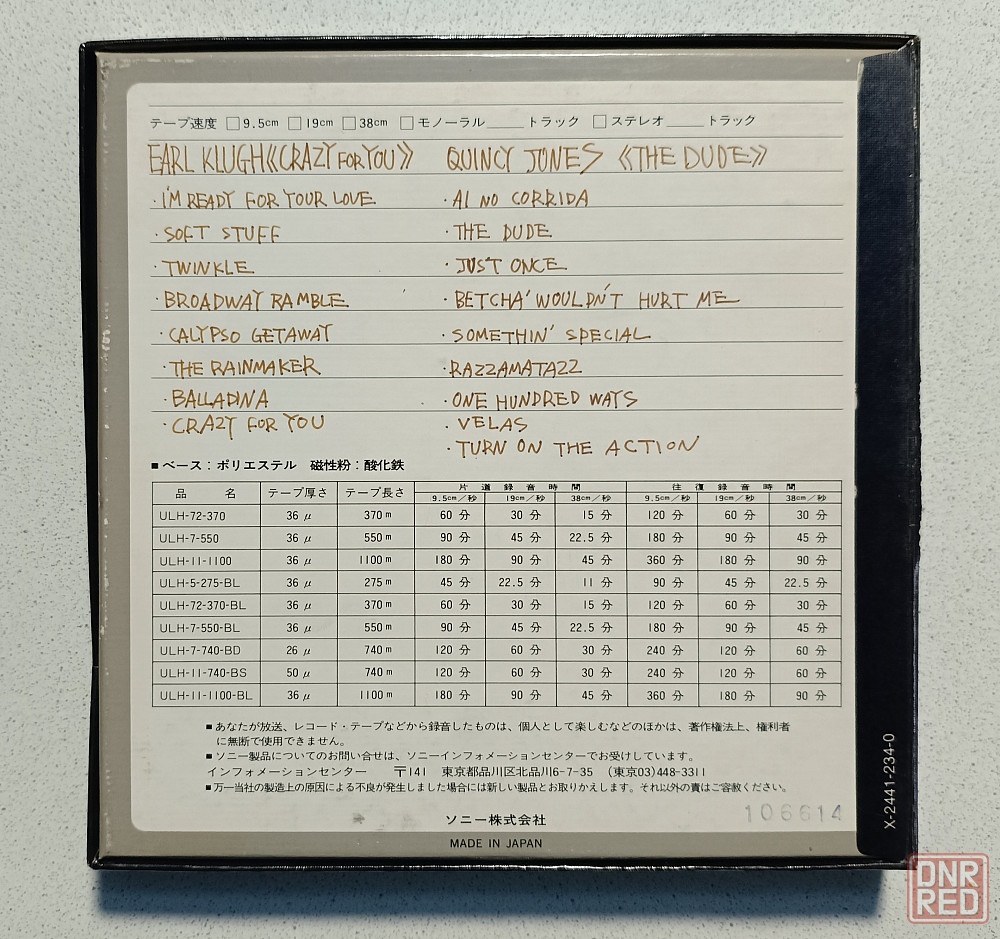 テープ速度 □9.5cm □19cm □38cm □モノーラル____トラック □ステレオ____トラック
EARL KLUGH《CRAZY FOR YOU》 QUINCY JONES 《THE DUDE》
· I'M READY FOR YOUR LOVE · AI NO CORRIDA
· SOFT STUFF · THE DUDE
· TWINKLE · JUST ONCE
· BROADWAY RAMBLE · BETCHA' WOULDN'T HURT ME
· CALYPSO GETAWAY · SOMETHIN' SPECIAL
· THE RAINMAKER · RAZZAMATAZZ
· BALLADINA · ONE HUNDRED WAYS
· CRAZY FOR YOU · VELAS
· TURN ON THE ACTION
■ベース：ポリエステル 磁性粉：酸化鉄
品名 テープ厚さ テープ長さ 片道録音時間 往復録音時間
9.5cm／秒 19cm／秒 38cm／秒 9.5cm／秒 19cm／秒 38cm／秒
ULH-72-370 36 μ 370 m 60 分 30 分 15 分 120 分 60 分 30 分
ULH-7-550 36 μ 550 m 90 分 45 分 22.5 分 180 分 90 分 45 分
ULH-11-1100 36 μ 1100 m 180 分 90 分 45 分 360 分 180 分 90 分
ULH-5-275-BL 36 μ 275 m 45 分 22.5 分 11 分 90 分 45 分 22.5 分
ULH-72-370-BL 36 μ 370 m 60 分 30 分 15 分 120 分 60 分 30 分
ULH-7-550-BL 36 μ 550 m 90 分 45 分 22.5 分 180 分 90 分 45 分
ULH-7-740-BD 26 μ 740 m 120 分 60 分 30 分 240 分 120 分 60 分
ULH-11-740-BS 50 μ 740 m 120 分 60 分 30 分 240 分 120 分 60 分
ULH-11-1100-BL 36 μ 1100 m 180 分 90 分 45 分 360 分 180 分 90 分
■あなたが放送、レコード・テープなどから録音したものは、個人として楽しむなどのほかは、著作権法上、権利者
に無断で使用できません。
■ソニー製品についてのお問い合せは、ソニーインフォメーションセンターでお受けしています。
インフォメーションセンター 〒141 東京都品川区北品川6-7-35 (東京03)448-3311
■万一当社の製造上の原因による不良が発生しました場合には新しい製品とお取りかえします。それ以外の責はご容赦ください。
106614
ソニー株式会社
MADE IN JAPAN
X-2441-234-0
DNR
RED